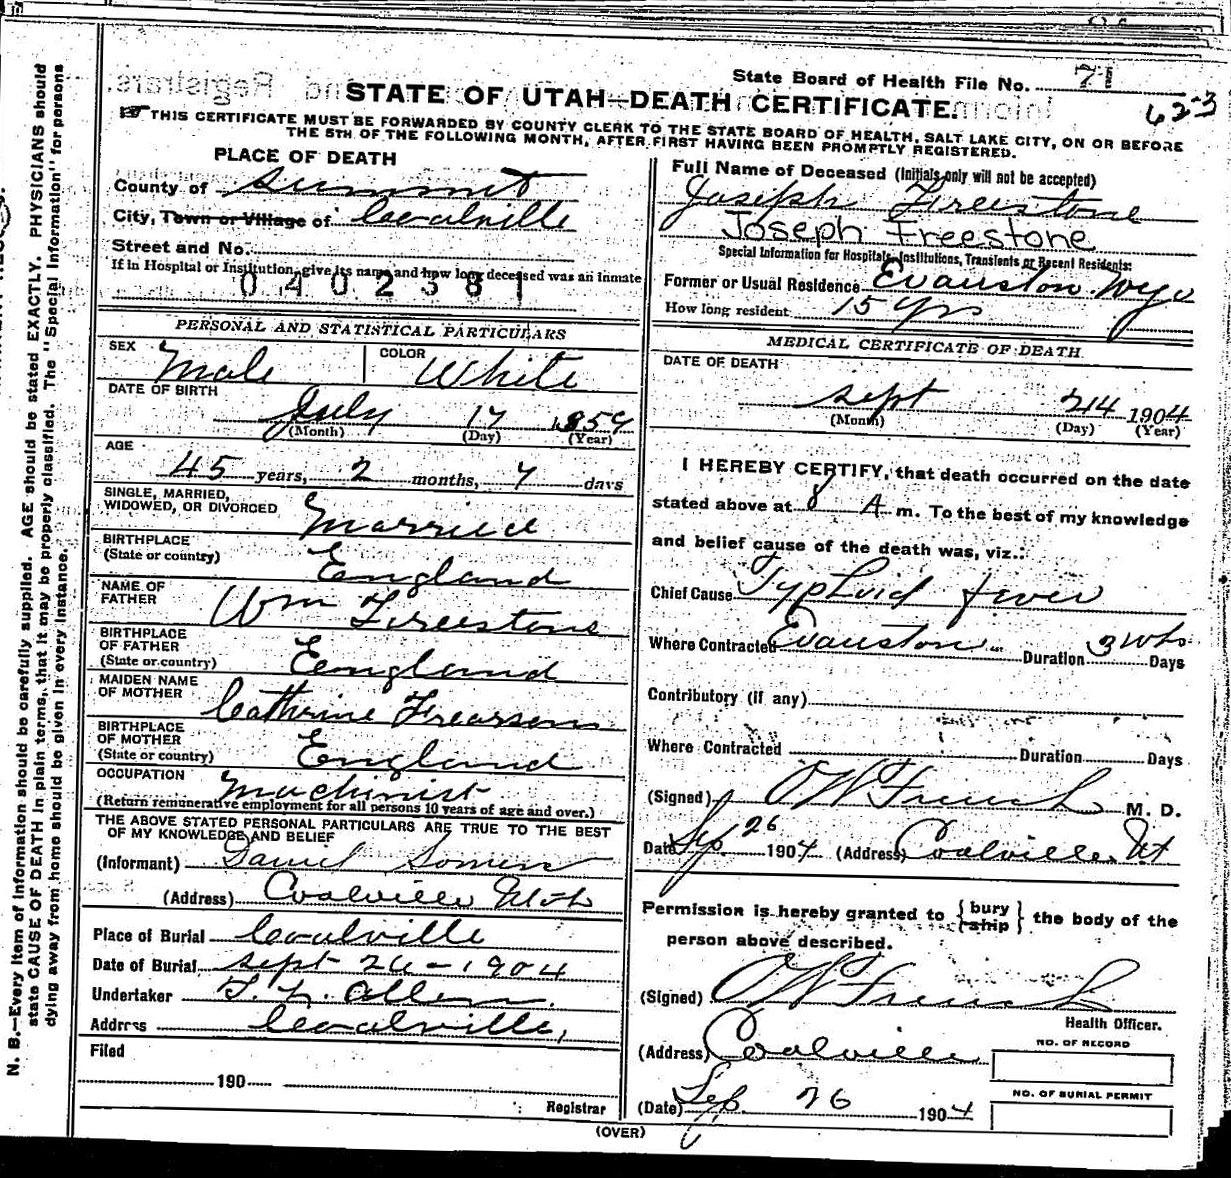 State Board of Health File No. 71
62-3
STATE OF UTAH—DEATH CERTIFICATE.
THIS CERTIFICATE MUST BE FORWARDED BY COUNTY CLERK TO THE STATE BOARD OF HEALTH, SALT LAKE CITY, ON OR BEFORE
THE 5TH OF THE FOLLOWING MONTH, AFTER FIRST HAVING BEEN PROMPTLY REGISTERED.
PLACE OF DEATH
County of Summit
City, Town or Village of Coalville
Street and No.
If in Hospital or Institution, give its name and how long deceased was an inmate
0402381
PERSONAL AND STATISTICAL PARTICULARS
SEX Male COLOR White
DATE OF BIRTH
July 17 1859
(Month) (Day) (Year)
AGE
45 years, 2 months, 7 days
SINGLE, MARRIED,
WIDOWED, OR DIVORCED Married
BIRTHPLACE
(State or country) England
NAME OF
FATHER Wm Freestone
BIRTHPLACE
OF FATHER
(State or country) England
MAIDEN NAME
OF MOTHER Cathrine Frearson
BIRTHPLACE
OF MOTHER
(State or country) England
OCCUPATION Machinist
(Return remunerative employment for all persons 10 years of age and over.)
THE ABOVE STATED PERSONAL PARTICULARS ARE TRUE TO THE BEST
OF MY KNOWLEDGE AND BELIEF
(Informant) Daniel
(Address) Coalville Utah
Place of Burial Coalville
Date of Burial Sept 26-1904
Undertaker T. L. Allen.
Address Coalville,
Filed
190
Registrar
Full Name of Deceased (Initials only will not be accepted)
Joseph Freestone
Joseph Freestone
Special Information for Hospitals, Institutions, Transients or Recent Residents:
Former or Usual Residence Evanston. Wyo
How long resident 15 yrs
MEDICAL CERTIFICATE OF DEATH
DATE OF DEATH
Sept 24 1904
(Month) (Day) (Year)
I HEREBY CERTIFY, that death occurred on the date
stated above at 8 A m. To the best of my knowledge
and belief cause of the death was, viz.:
Chief Cause Typhoid fever
Where Contracted Evanston Duration 3 wks Days
Contributory (if any)
Where Contracted Duration Days
(Signed) O W French M. D.
Date Sep 26 1904 (Address) Coalville. Ut
Permission is hereby granted to {bury ship} the body of the
person above described.
(Signed) O W French
Health Officer.
(Address) Coalville
NO. OF RECORD
NO. OF BURIAL PERMIT
(Date) Sep 26 1904
(OVER)
N. B.—Every item of information should be carefully supplied. AGE should be stated EXACTLY. PHYSICIANS should
state CAUSE OF DEATH in plain terms, that it may be properly classified. The "Special Information" for persons
dying away from home should be given in every instance.